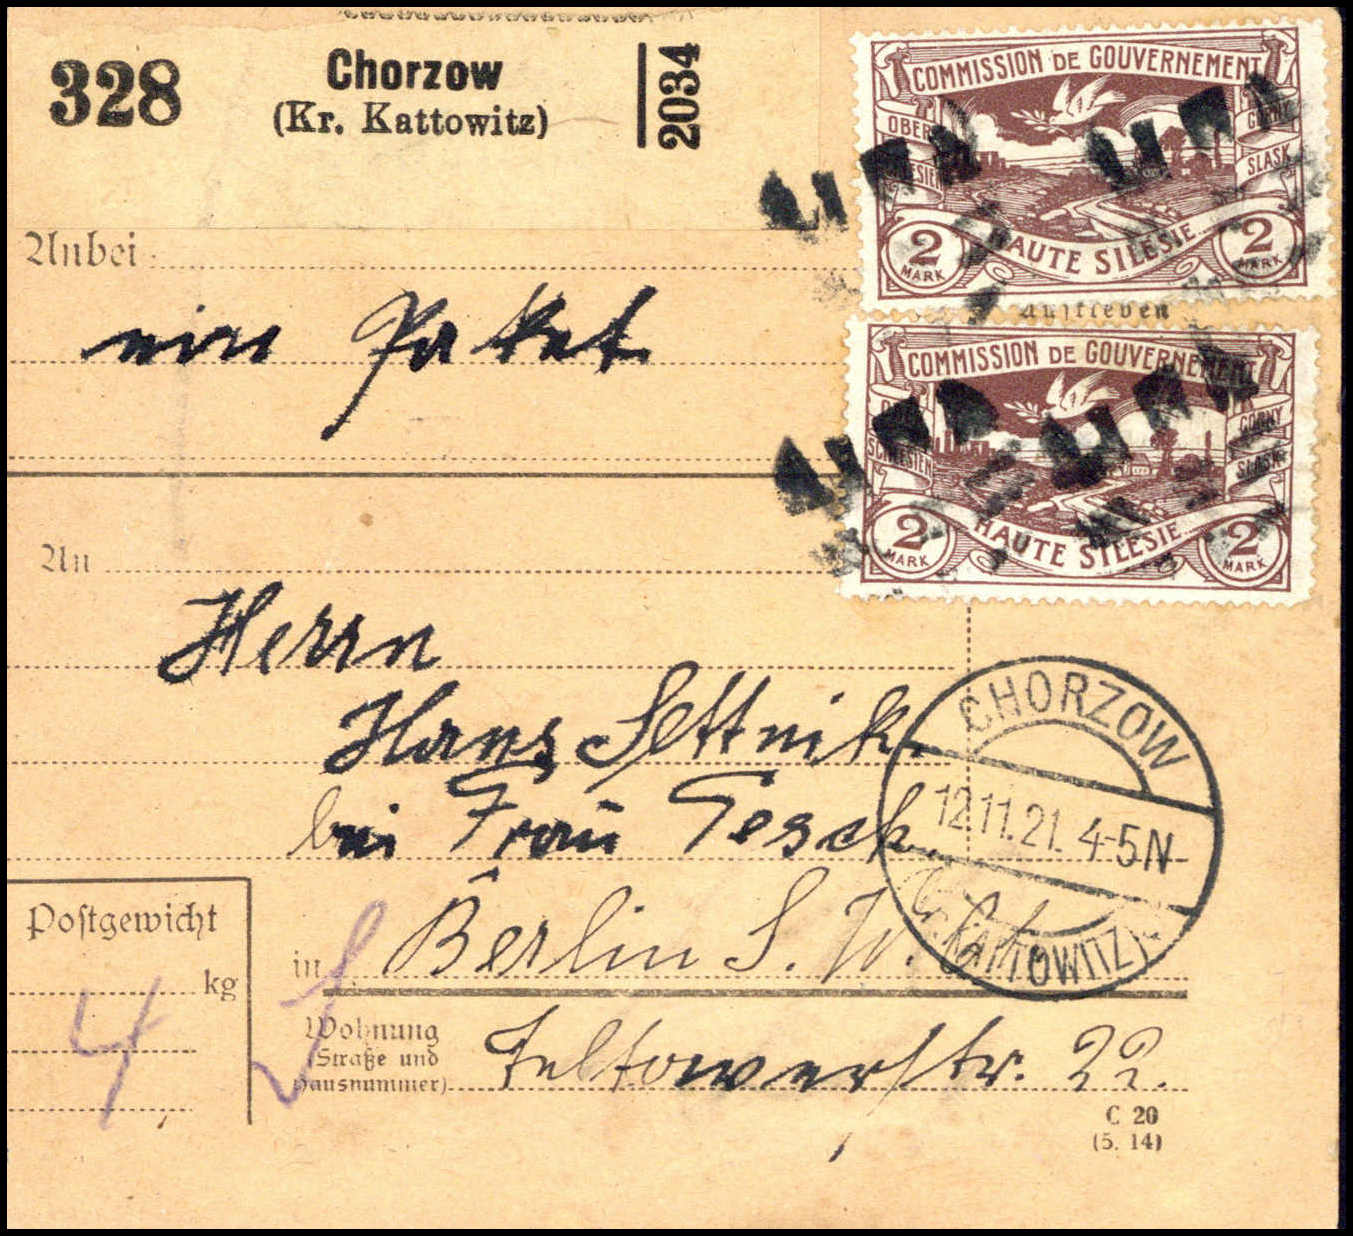 328
Chorzow
(Kr. Kattowitz)
2034
COMMISSION DE GOUVERNEMENT
OBER
GORNY
SLASK
2 MARK
HAUTE SILESIE
2 MARK
Anbei
Aufkleben
ein Paket
COMMISSION DE GOUVERNEMENT
SCHLESIEN
GORNY
SLASK
2 MARK
HAUTE SILESIE
2 MARK
An
Herrn
Hans Settnik
bei Frau Tesch
CHORZOW
12.11.21. 4-5N
(Kr. KATTOWITZ)
Postgewicht
kg
4
in Berlin S. W.
Wohnung
(Straße und
Hausnummer)
Teltowerstr. 22.
C 20
(5. 14)